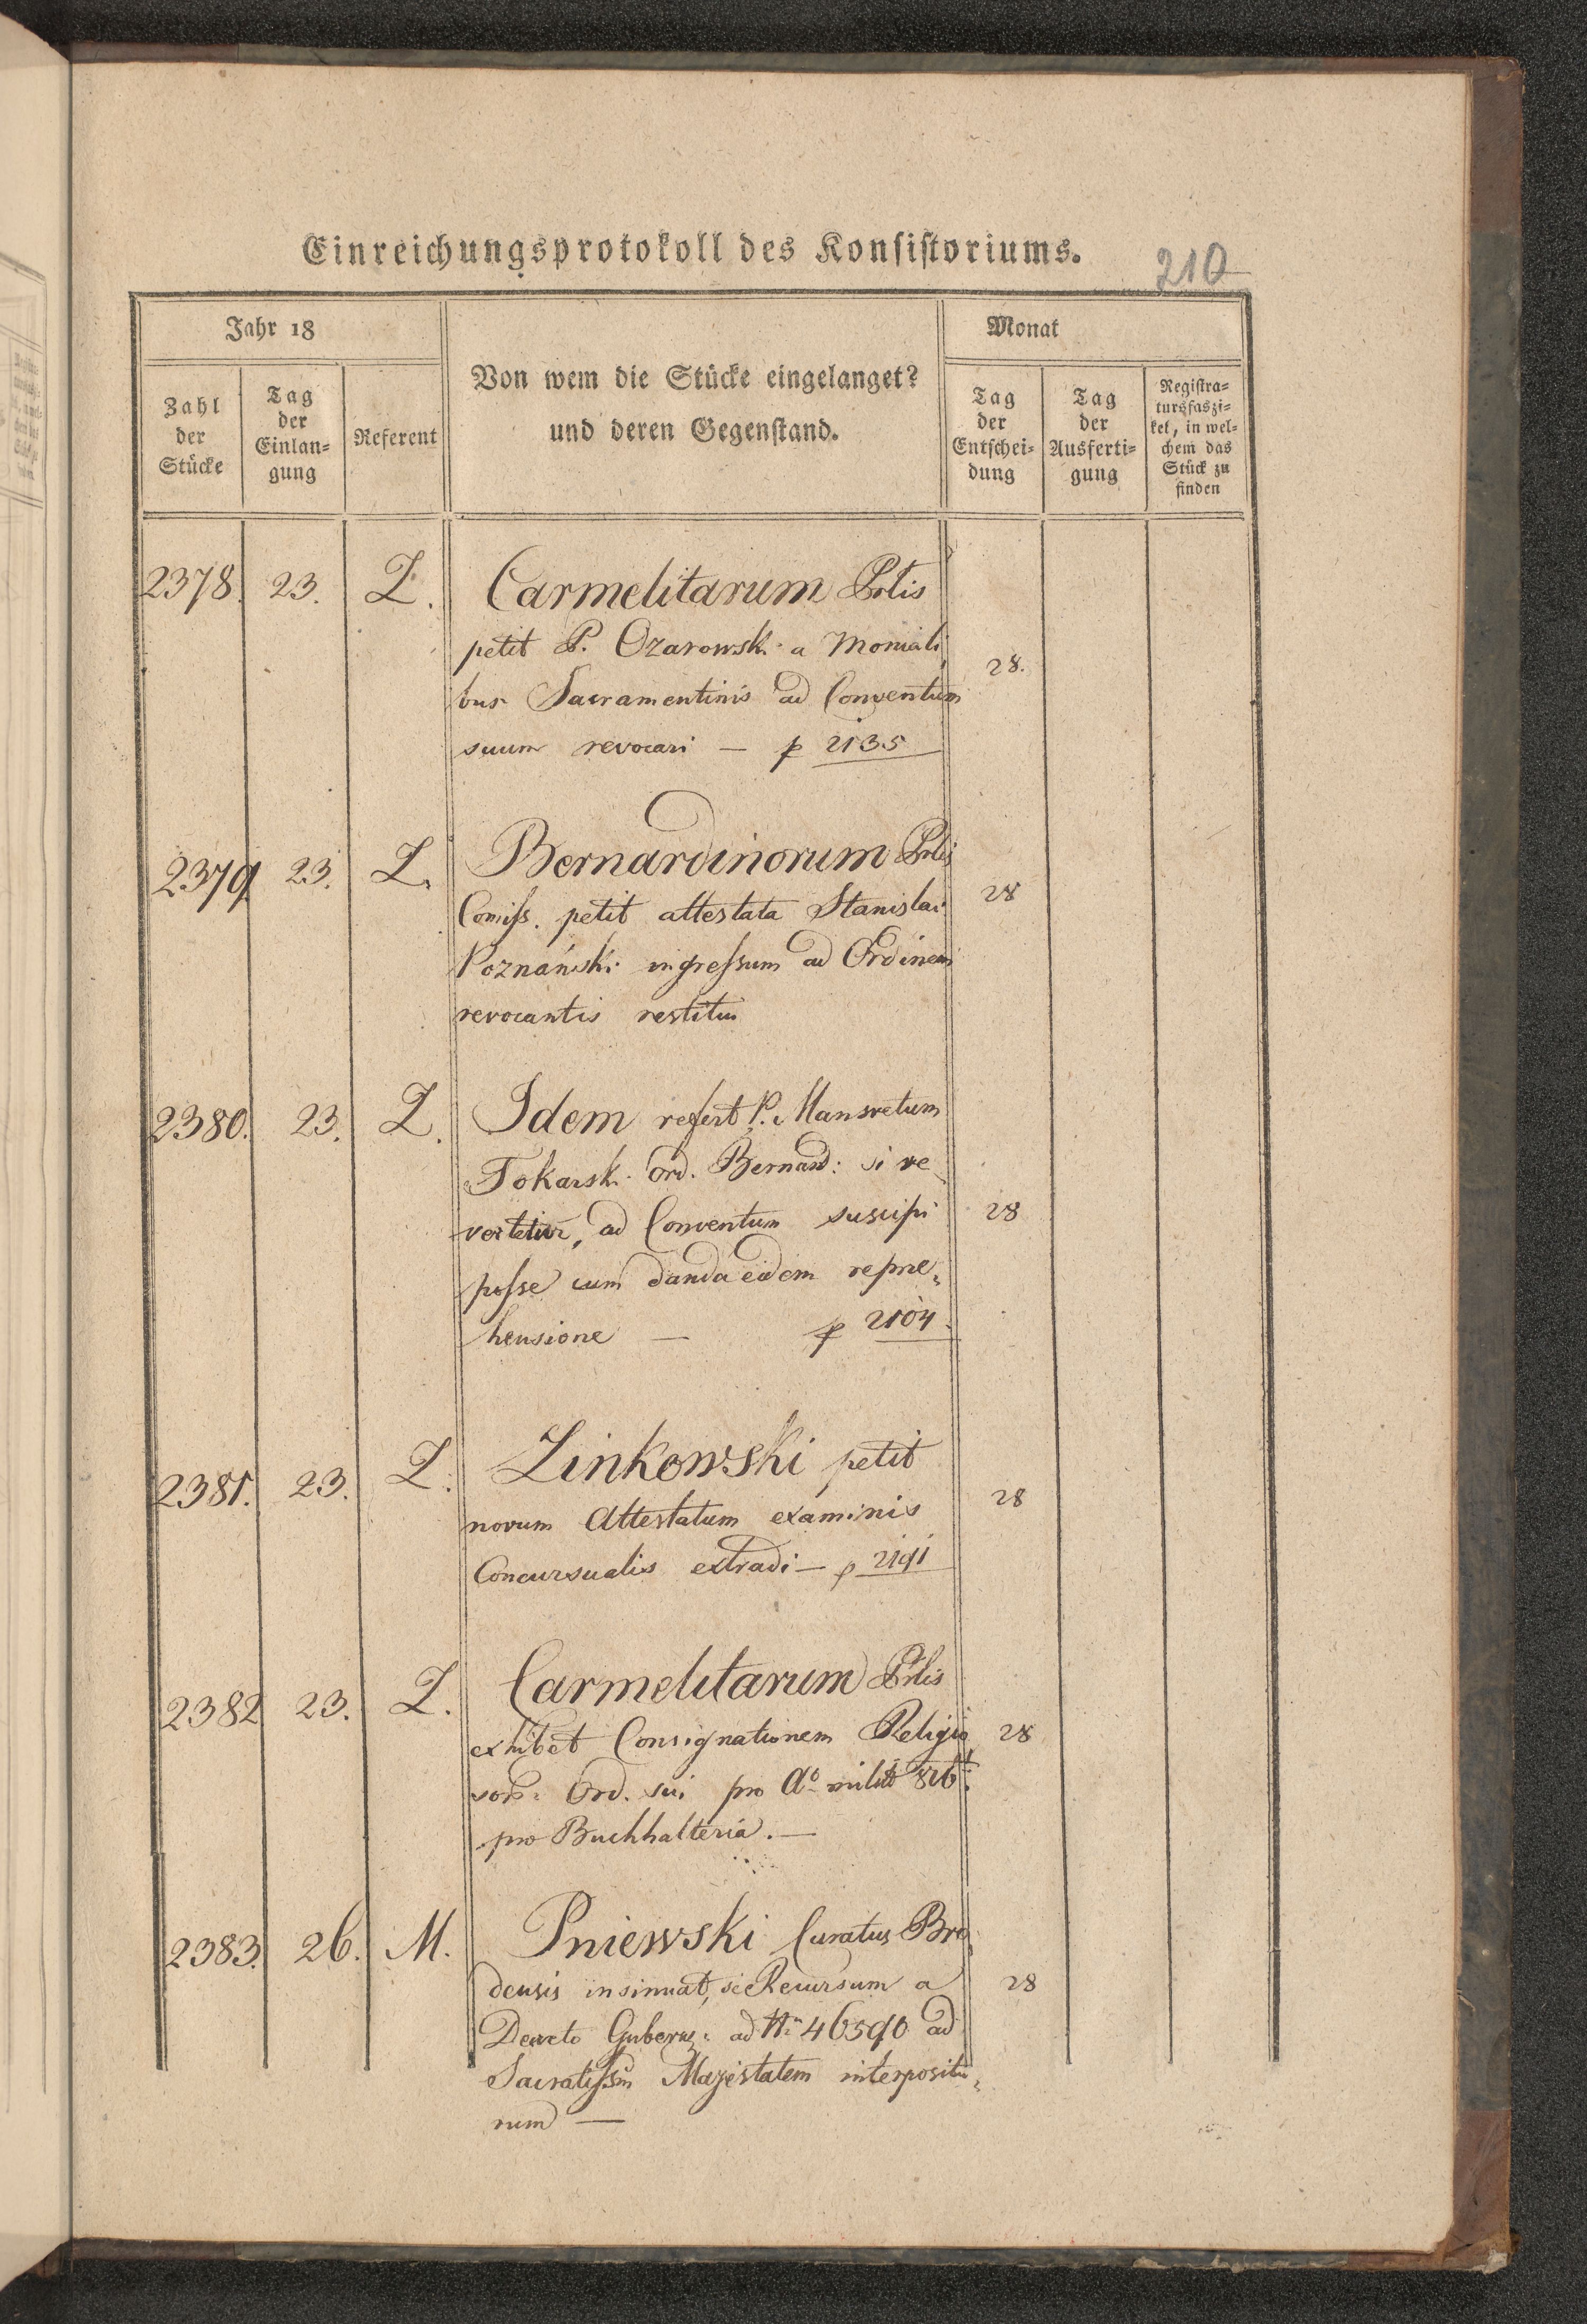 Einreichungsprotokoll des Konsistoriums.
210
Jahr 18
Monat
Zahl der Stücke
Tag der Einlan=gung
Referent
Von wem die Stücke eingelanget?
und deren Gegenstand.
Tag der Entschei=dung
Tag der Ausferti=gung
Registra=tursfaszi=kel, in wel=chem das Stück zu finden
2378. 23. L. Carmelitarum Prlis
petit P. Ozarowski a Moniali
bus Sacramentinis ad Conventum 28.
suum revocari — p 2135
2379. 23. L. Bernardinorum Prlis
Comiss. petit attestata Stanislai 28
Poznański ingressum ad Ordinem
revocantis restitui
2380. 23. L. Idem refert P. Mansvetum
Tokarski Ord. Bernard: si re
vertetur, ad Conventum suscipi 28
posse cum danda eidem repre,
hensione — p 2104.
2381. 23. L. Linkowski petit
novum Attestatum examinis 28
Concursualis extradi — p 2191
2382 23. L. Carmelitarum Prlis
exhibet Consignationem Religio 28
sor: Ord. sui pro Ao milit 826t.
pro Buchhalteria. —
2383. 26. M. Pniewski Curatus Bro,
densis insinuat, se Recursum a 28
Decreto Gubern: ad Nr 46590 ad
Sacratissm Majestatem interpositu,
rum —